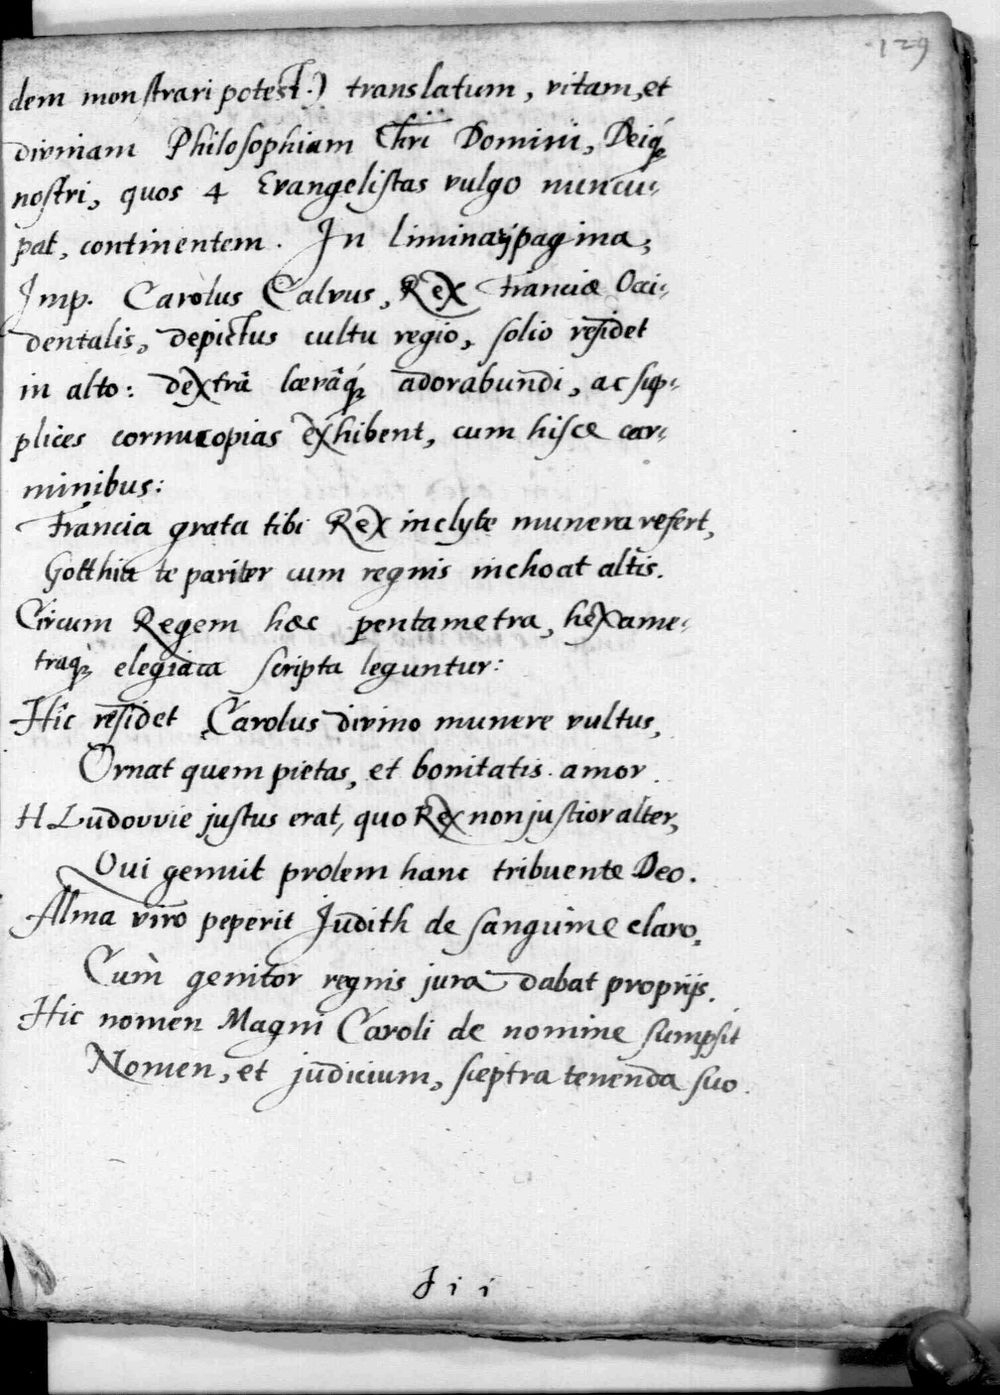 129
dem monstrari potest.) translatum, vitam, et
diviniam Philosophiam Chri Domini, Deiq́;
nostri, quos 4 Evangelistas vulgo nuncu-
pat, continentem. In liminarj pagina,
Imp. Carolus Calvus, Rex Franciæ Occi-
dentalis, depictus cultu regio, solio residet
in alto: dextrâ lævâq́; adorabundi, ac sup-
plices cornucopias exhibent, cum hisce car-
minibus:
Francia grata tibi Rex inclyte munera refert,
Gotthia te pariter cum regnis inchoat altis.
Circum Regem hæc pentametra, hexame-
traq́; elegiaca scripta leguntur:
Hîc residet Carolus divino munere vultus,
Ornat quem pietas, et bonitatis amor.
HLudovvie justus erat, quo Rex non justior alter,
Qui genuit prolem hanc tribuente Deo.
Alma viro peperit Judith de sanguine claro,
Cùm genitor regnis jura dabat proprijs.
Hic nomen Magni Caroli de nomine sumpsit
Nomen, et judicium, sceptra tenenda suo.
I i i